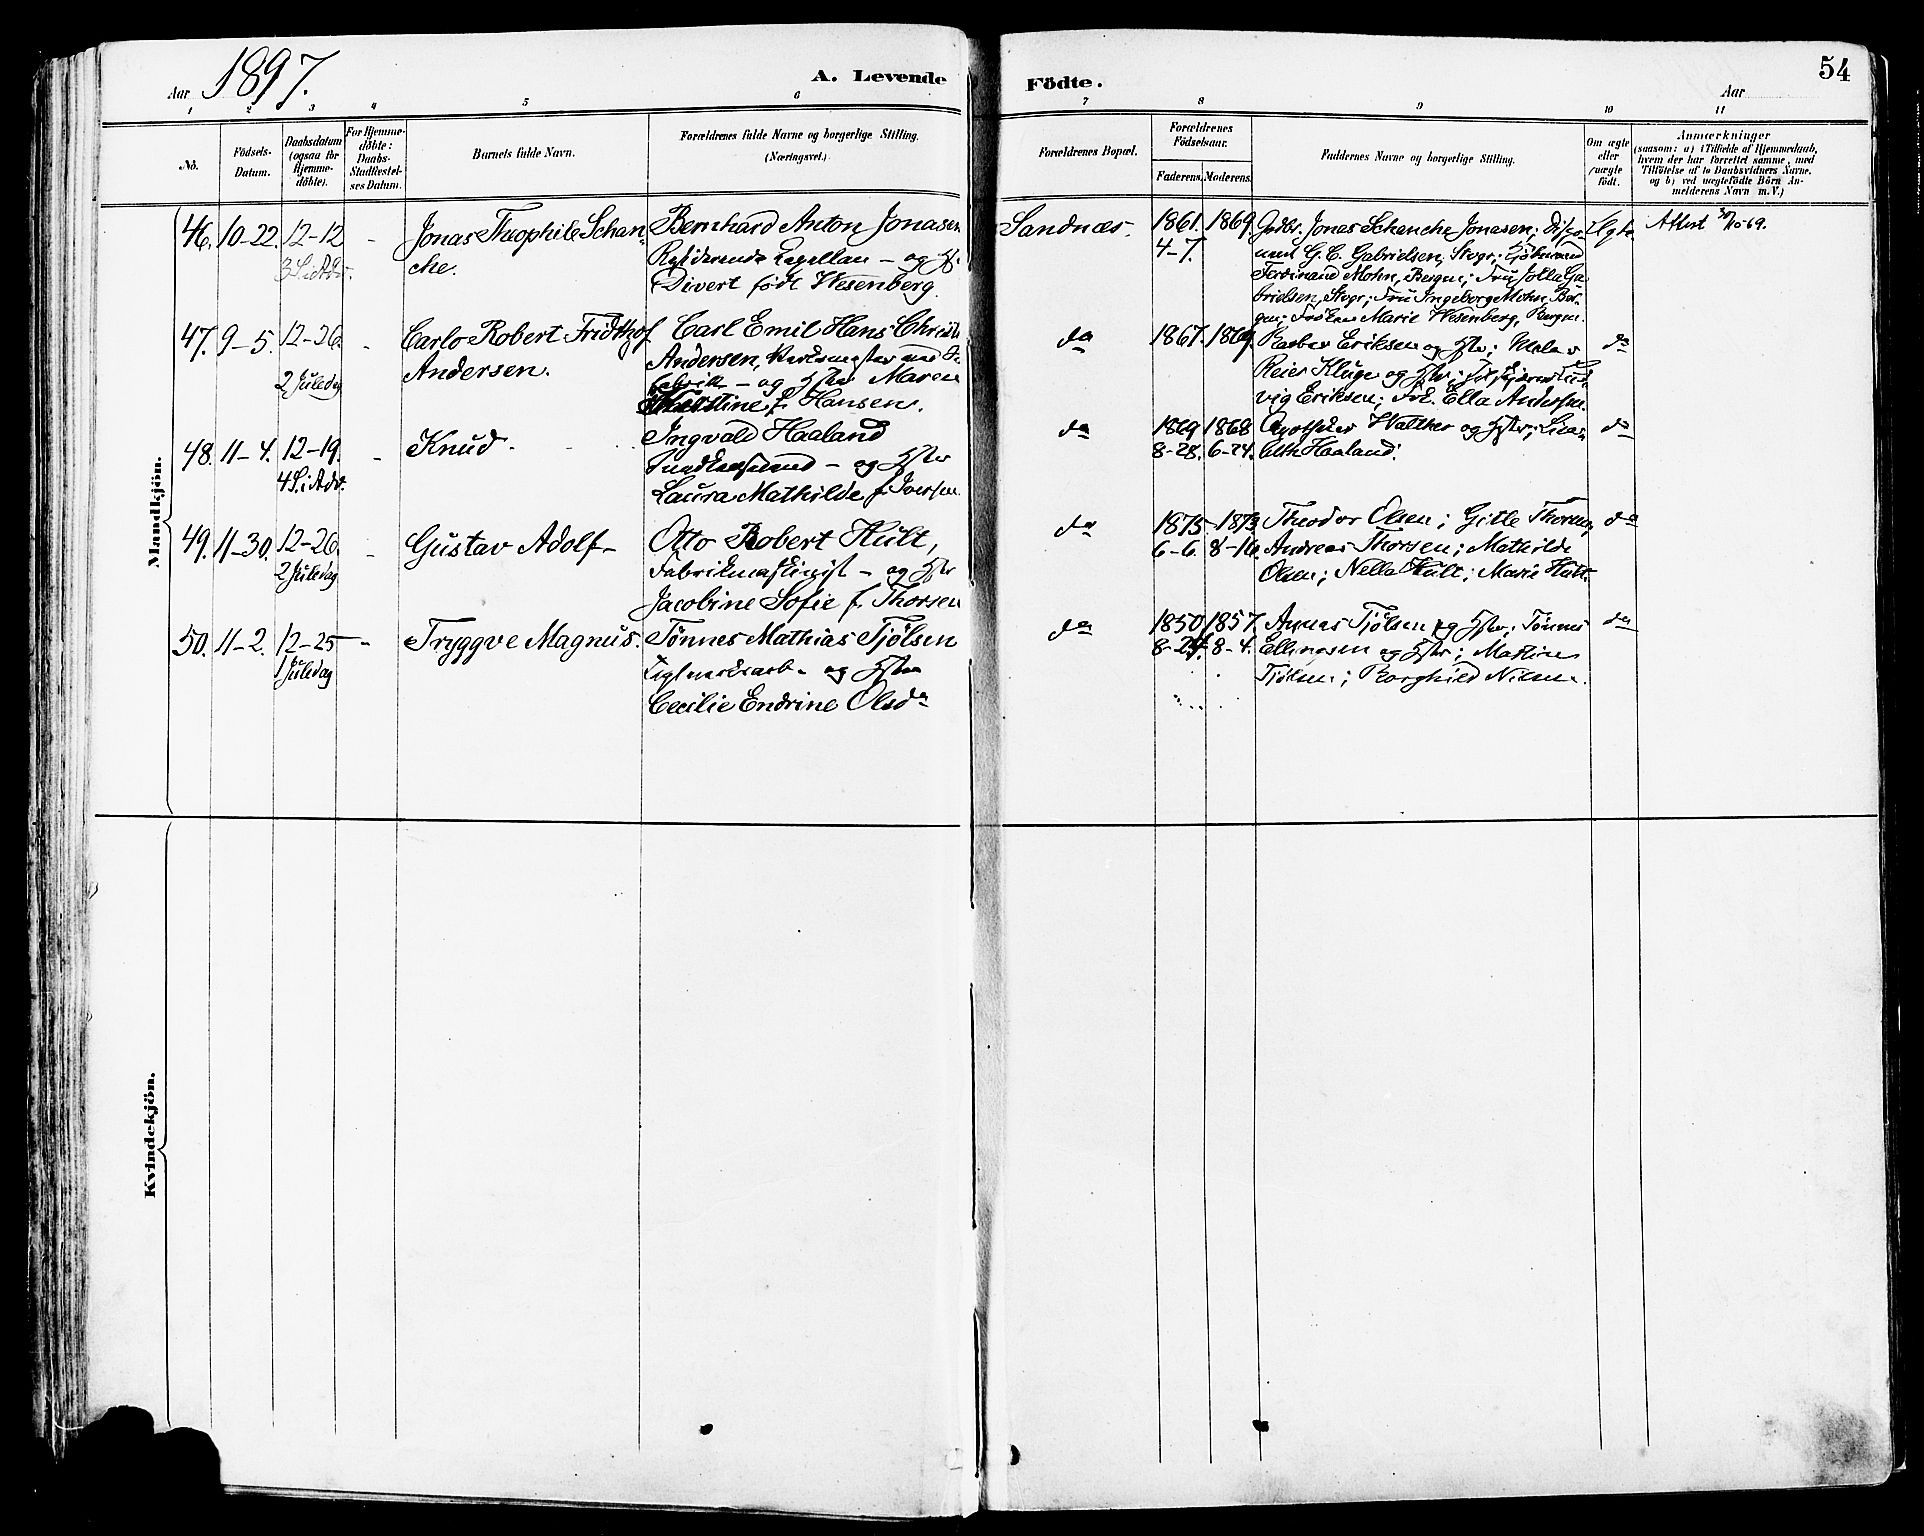 Aar 1897.
A. Levende
Födte.
54
Aar
1 2 3 4 5 6 7 8 9 10 11
No.
Födsels-
Datum.
Daabsdatum
(ogsaa for
Hjemme-
døbte).
For Hjemme-
døbte:
Daabs-
Stadfæstel-
ses Datum.
Barnets fulde Navn.
Forældrenes fulde Navne og borgerlige Stilling.
(Næringsvei.)
Forældrenes Bopæl.
Forældrenes
Födselsaar.
Faderens. Moderens.
Faddernes Navne og borgerlige Stilling.
Om ægte
eller
uægte
født.
Anmærkninger
(saasom: a) i Tilfælde af Hjemmedaab,
hvem der har forrettet samme, med
Tilføielse af to Daabsvidners Navne,
og b) ved uægtefødte Börn An-
melderens Navn m. V.)
Mandkjön.
46. 10-22. 12-12 -
3 S. i Adv.
Jonas Theophile Schan-
che.
Bernhard Anton Jonasen
Residerende Kapellan - og H.
Divert født Wesenberg
Sandnæs.
1861. 1869.
4-7.
Godbr. Jonas Schanche Jonasen; Dispo-
nent G. C. Gabrielsen, Stvgr;
Ferdinand Mohn, Bergen; Fru Ga-
brielsen, Stvgr; Fru Ingeborg Mohn, Ber-
gen; Frøken Marie Wesenberg, Bergen.
Ægte.
Attest 69.
47. 9-5. 12-26. -
2 Juledag
Carlo Robert Fridthjof
Andersen.
Carl Emil Hans Christi
Andersen,
Fabrik - og Hstr Maren
f. Hansen.
do
1867. 1869.
Eriksen og Hstr; Maler
Reier Kluge og Hstr;
vig Eriksen; Frk. Ella Andersen.
do
48. 11-4. 12-19. -
4 S. i Adv.
Knud -
Ingvald Haaland
- og Hstr
Laura Mathilde f. Iversen
do
1869 1868
8-28. 6-24.
Walther og Hstr;
Haaland.
do
49. 11-30. 12-26. -
2 Juledag
Gustav Adolf -
Otto Robert Hult,
Fabrikmaskinist - og Hstr
Jacobine Sofie f. Thorsen
do
1875 1873
6-6. 8-16.
Theodor Olsen; Gitle Thorsen;
Andreas Thorsen; Mathilde
Olsen; Nella Hult; Marie Hult.
do
50. 11-2. 12-25 -
1 Juledag
Tryggve Magnus.
Tønnes Mathias Tjølsen
Teglverksarb. - og Hstr
Cecilie Endrine Olsdr
do
1850 1857.
8-24. 8-4.
Tjølsen og Hstr; Tønnes
Ellingsen og Hstr; Martine
Tjølsen; Borghild Nilsen.
do
Kvindekjön.